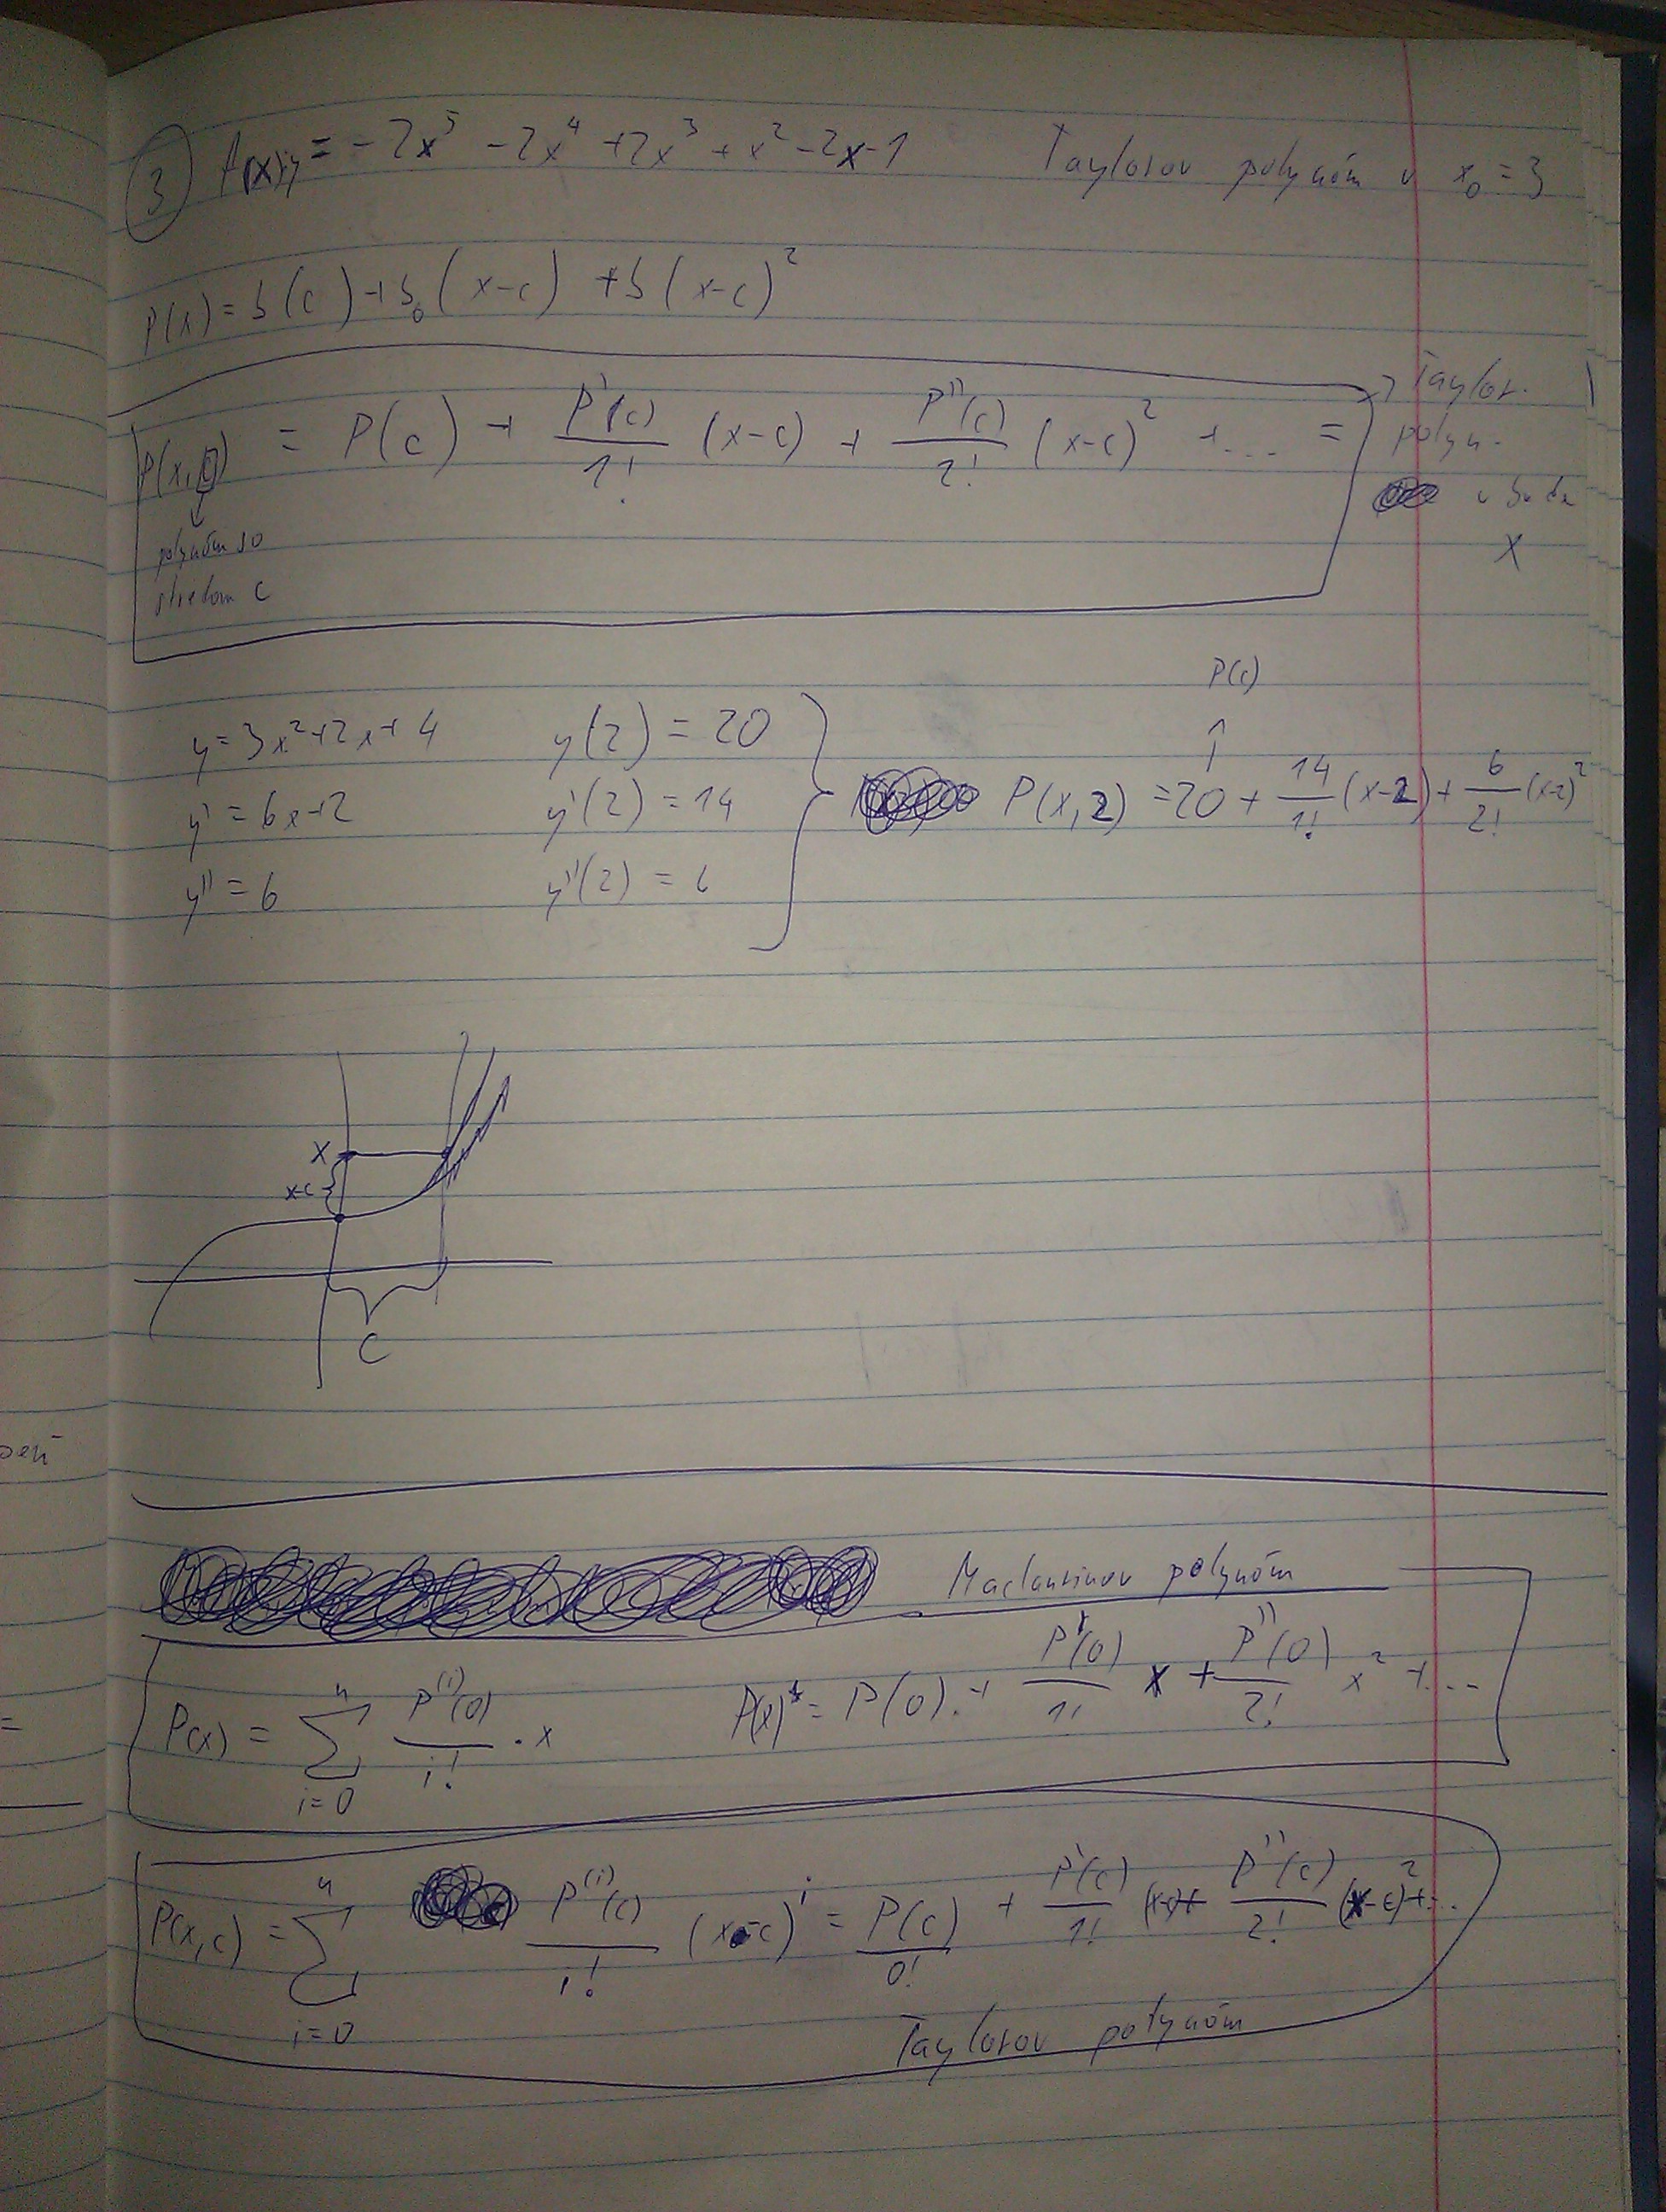 ③ f(x): y = -2x⁵ -2x⁴ +2x³ + x² -2x-1 Taylorov polynóm v x₀ = 3
P(x) = b(c) + b₀(x-c) + b(x-c)²
P(x,c) = P(c) + P'(c)/1! (x-c) + P''(c)/2! (x-c)² + ... =
→ Taylor.
polyn.
v bode
x
polynóm so
stredom c
P(c)
↑
y = 3x²+2x+4 y(2) = 20
y' = 6x+2 y'(2) = 14 P(x,2) = 20 + 14/1! (x-2) + 6/2! (x-2)²
y'' = 6 y''(2) = 6
x
x-c
c
Maclaurinov polynóm
P(x) = Σ i=0 n P⁽ⁱ⁾(0)/i! · x P(x) = P(0) + P'(0)/1! x + P''(0)/2! x² + ...
P(x,c) = Σ i=0 n P⁽ⁱ⁾(c)/i! (x-c)ⁱ = P(c)/0! + P'(c)/1! (x-c) + P''(c)/2! (x-c)² + ...
Taylorov polynóm